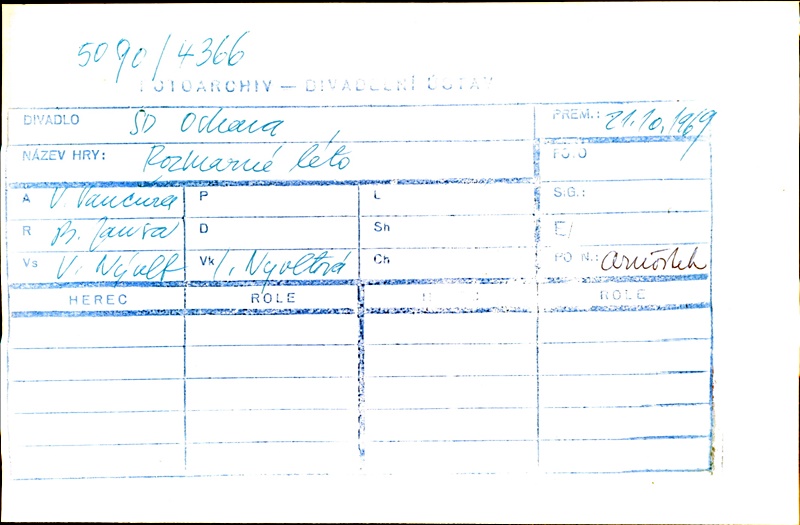 5090/4366
FOTOARCHIV — DIVADELNÍ ÚSTAV
DIVADLO SD Ostrava PREM.: 21.10.1969
NÁZEV HRY: Rozmarné léto FOTO
A V. Vančura P L SIG.:
R B. Jansa D Sh E/
Vs V. Nývlt Vk I. Nyvltová Ch POZN.: Arnoštek
HEREC ROLE H ROLE